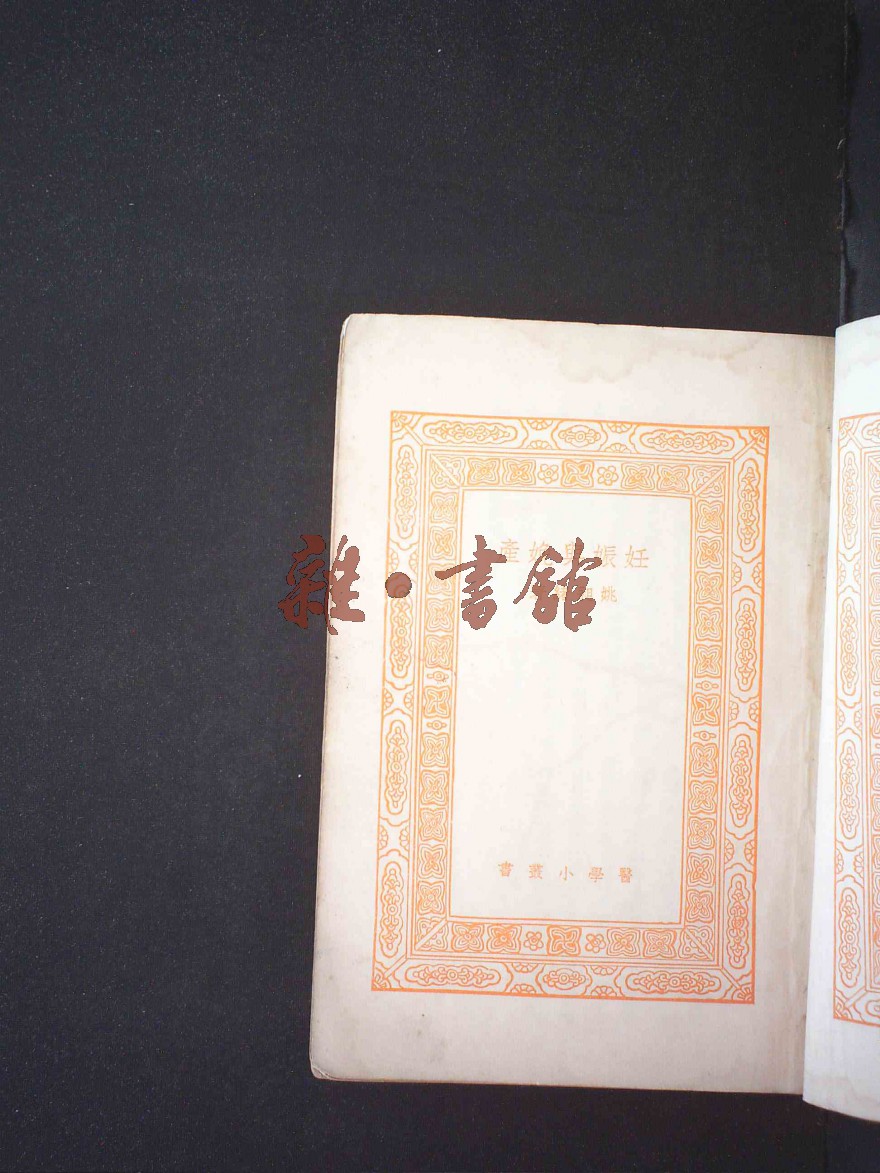 產娩與娠妊
姚
雜·書館
書叢小學醫